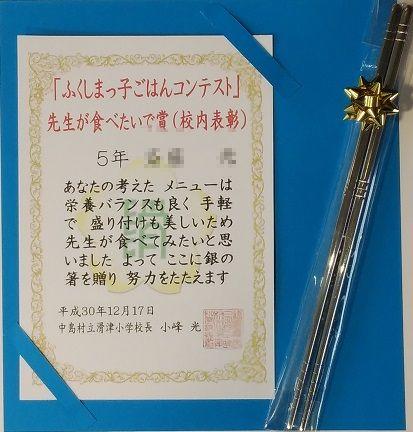 「ふくしまっ子ごはんコンテスト」
先生が食べたいで賞(校内表彰)
5年
あなたの考えた メニューは
栄養バランスも良く 手軽
で 盛り付けも美しいため
先生が食べてみたいと思
いました よって ここに銀の
箸を贈り 努力をたたえます
平成30年12月17日
中島村立滑津小学校長 小峰 光